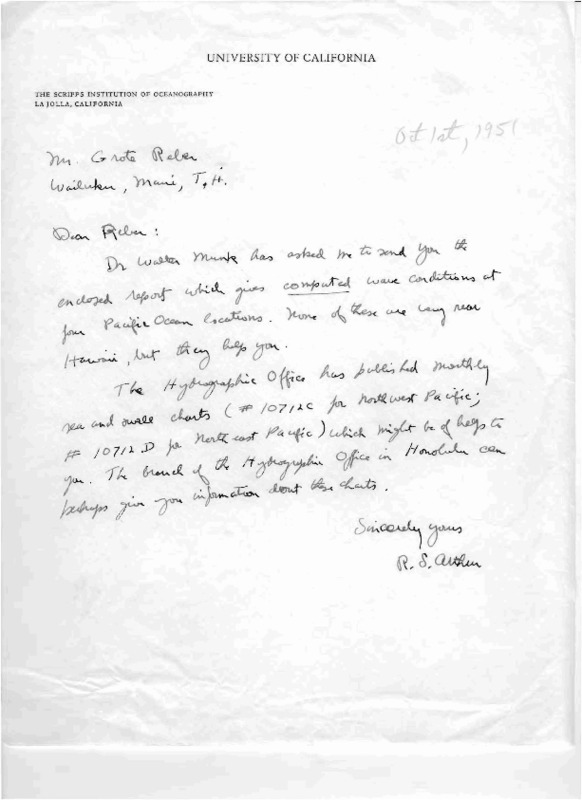 UNIVERSITY OF CALIFORNIA
THE SCRIPPS INSTITUTION OF OCEANOGRAPHY
LA JOLLA, CALIFORNIA
Oct 1st, 1951
Mr. Grote Reber
Wailuku, Maui, T.H.
Dear Reber:
Dr Walter Munk has asked me to send you the
enclosed report which gives computed wave conditions at
four Pacific Ocean locations. None of these are very near
Hawaii, but they help you.
The Hydrographic Office has published monthly
sea and swell charts (# 10712C for Northwest Pacific;
# 10712 D for North east Pacific) which might be of help to
you. The branch of the Hydrographic Office in Honolulu can
perhaps give you information about these charts.
Sincerely yours
R. S. Arthur